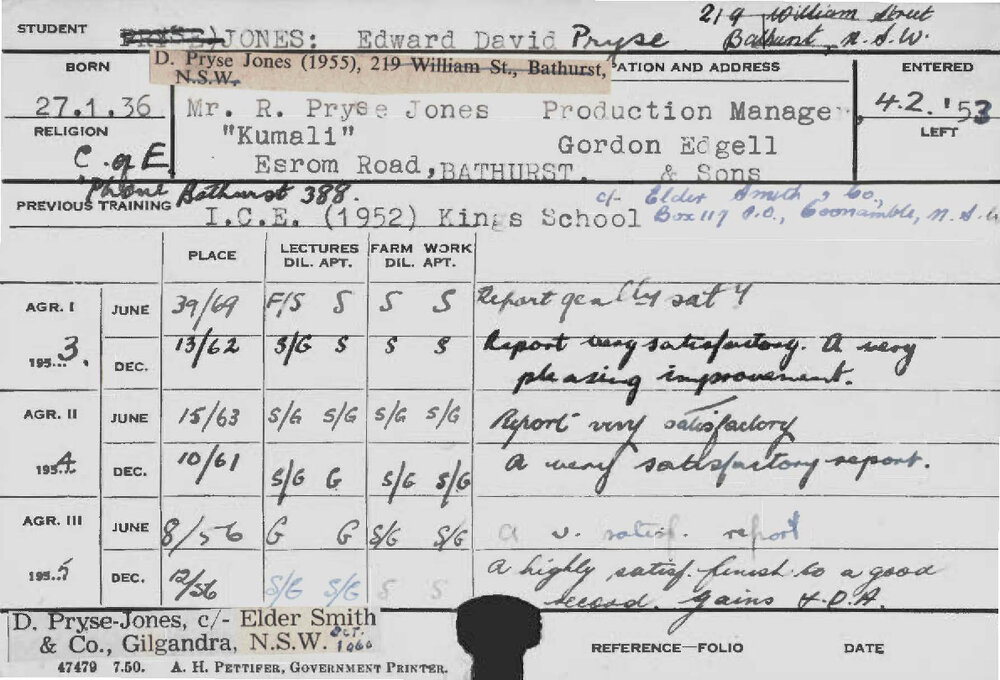 219 William Street
STUDENT PRYSE) JONES: Edward David Pryse Bathurst, N.S.W.
BORN D. Pryse Jones (1955), 219 William St., Bathurst, PATION AND ADDRESS ENTERED
N.S.W.
27.1.36 Mr. R. Pryse Jones Production Manager, 4.2.'53
RELIGION "Kumali" Gordon Edgell LEFT
C. of E Esrom Road, BATHURST. & Sons
'Phone Bathurst 388. c/- Elder Smith & Co.,
PREVIOUS TRAINING I.C.E. (1952) Kings School Box 117 P.O., Coonamble, N.S.W
PLACE LECTURES FARM WORK
DIL. APT. DIL. APT.
AGR. I JUNE 39/69 F/S S S S Report genally sat y
1953. DEC. 13/62 S/G S S S Report very satisfactory. A very
pleasing improvement.
AGR. II JUNE 15/63 S/G S/G S/G S/G Report very satisfactory
1954 DEC. 10/61 S/G G S/G S/G A very satisfactory report.
AGR. III JUNE 8/56 G G S/G S/G A v. satisf. report
195..5 DEC. 12/56 S/G S/G S S A highly satisf. finish to a good
record. Gains H.D.A.
D. Pryse-Jones, c/- Elder Smith
& Co., Gilgandra, N.S.W. OCT. 1960
REFERENCE—FOLIO DATE
47479 7.50. A. H. PETTIFER, GOVERNMENT PRINTER.